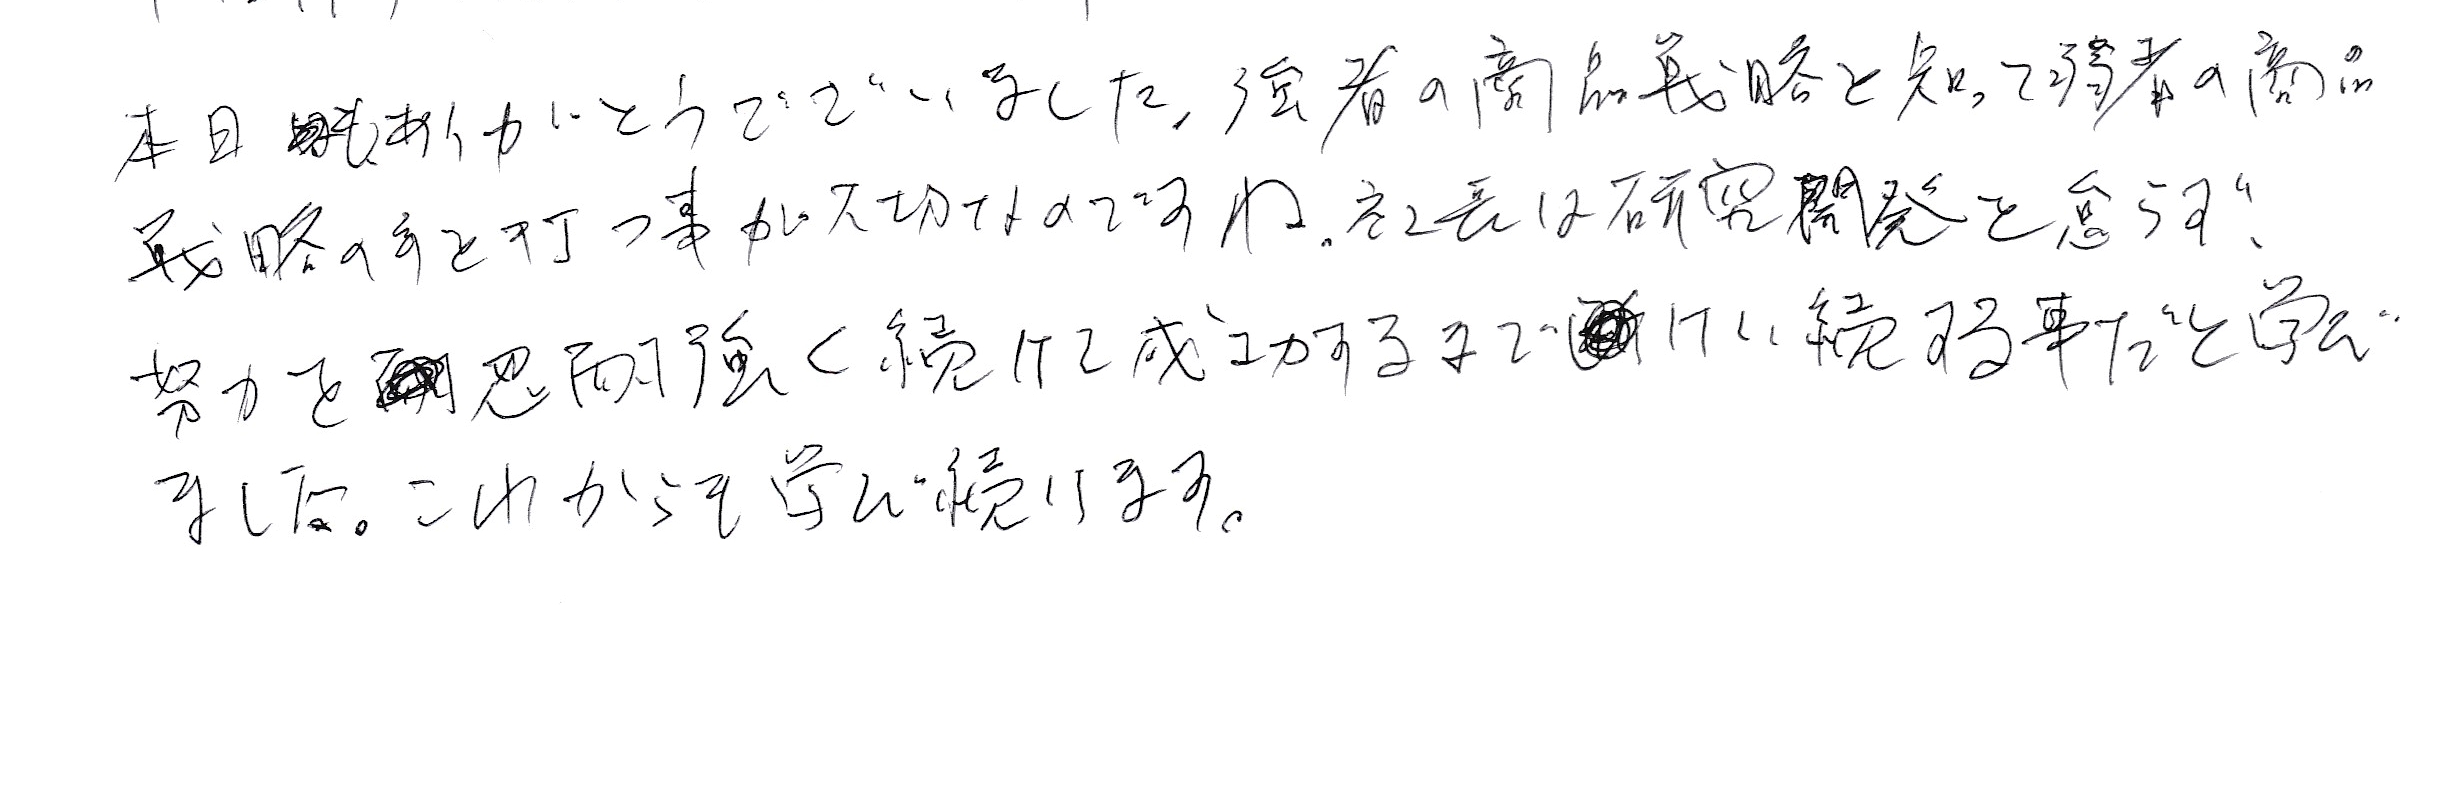 本日もありがとうございました。強者の商品戦略を知って弱者の商品
戦略の手を打つ事が大切なのですね。社長は研究開発を怠らず、
努力を忍耐強く続けて成功するまでけい続する事だと学び
ました。これからも学び続けます。